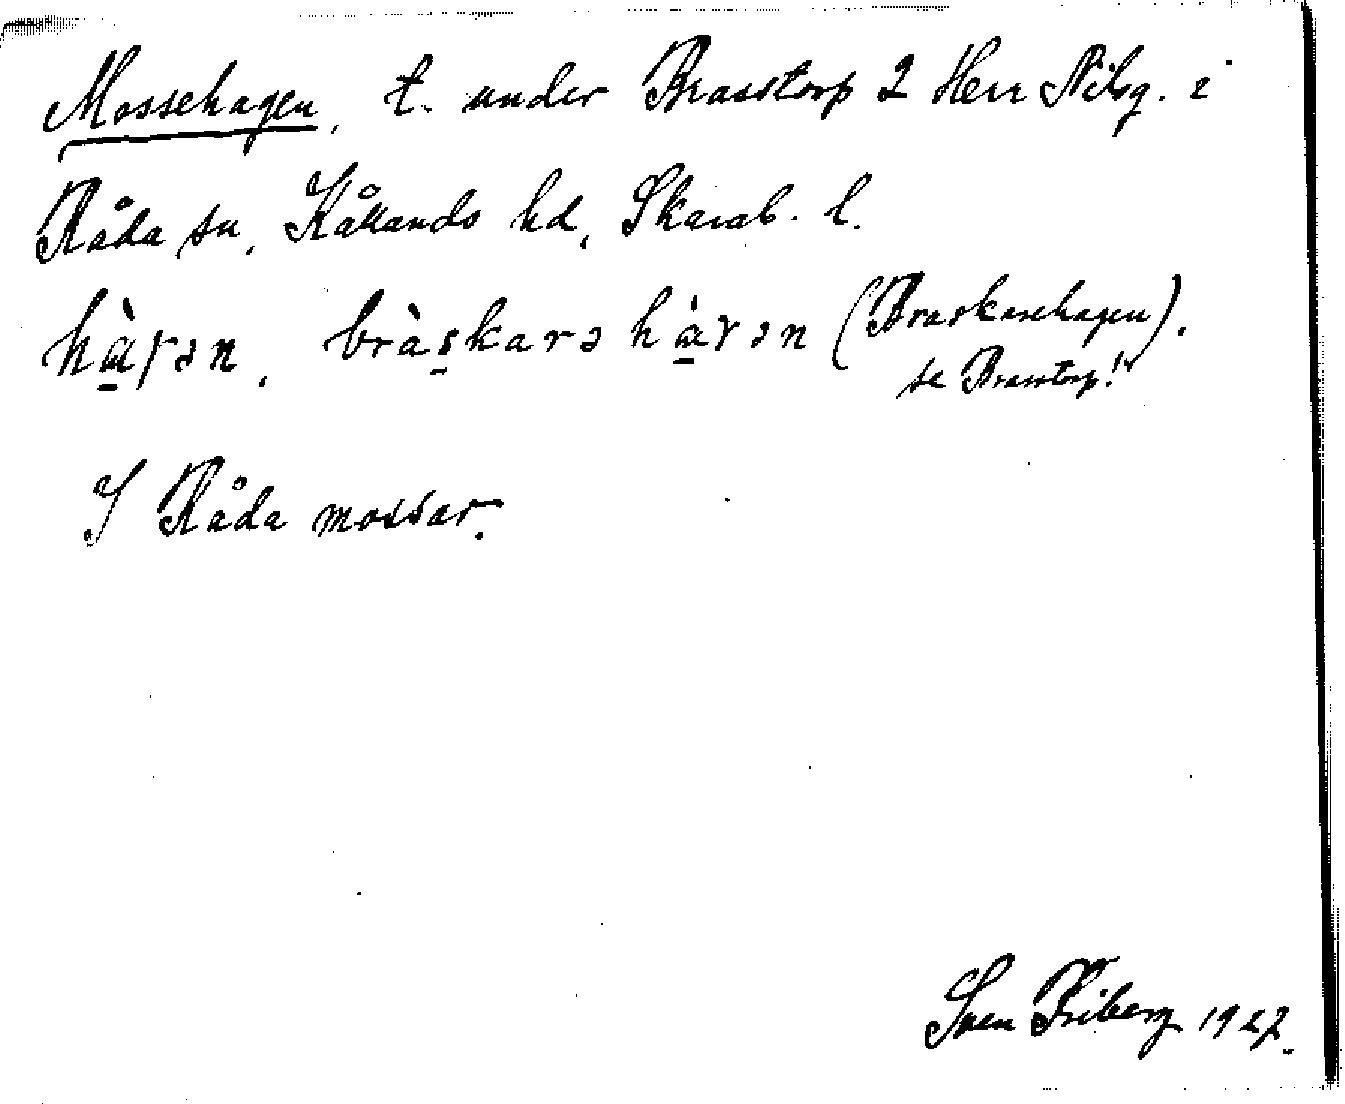 Mossehagen, t. under Brasstorp 2 Herr Nilsg. i
Råda sn, Kållands hd, Skarab. l.
hàɣən, bràskarə hàɣən (Braskarehagen).
se Brasstorp!
I Råda mossar.
Sven Friberg 1927.